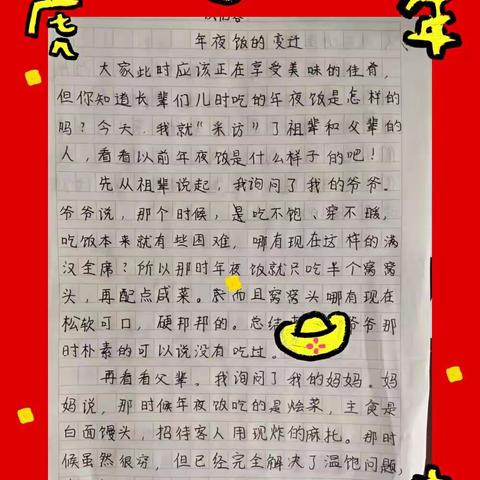 年夜饭的变迁
大家此时应该正在享受美味的佳肴，
但你知道长辈们儿时吃的年夜饭是怎样的
吗？今天，我就"采访"了祖辈和父辈的
人，看看以前年夜饭是什么样子的吧！
先从祖辈说起，我询问了我的爷爷。
爷爷说，那个时候，是吃不饱、穿不暖，
吃饭本来就有些困难，哪有现在这样的满
汉全席？所以那时年夜饭就只吃半个窝窝
头，再配点咸菜。而且窝窝头哪有现在
松软可口，硬邦邦的。总结 爷爷那
时朴素的可以说没有吃过。
再看看父辈。我询问了我的妈妈。妈
妈说，那时候年夜饭吃的是烩菜，主食是
白面馒头，招待客人用现炸的麻托。那时
候虽然很穷，但已经完全解决了温饱问题，